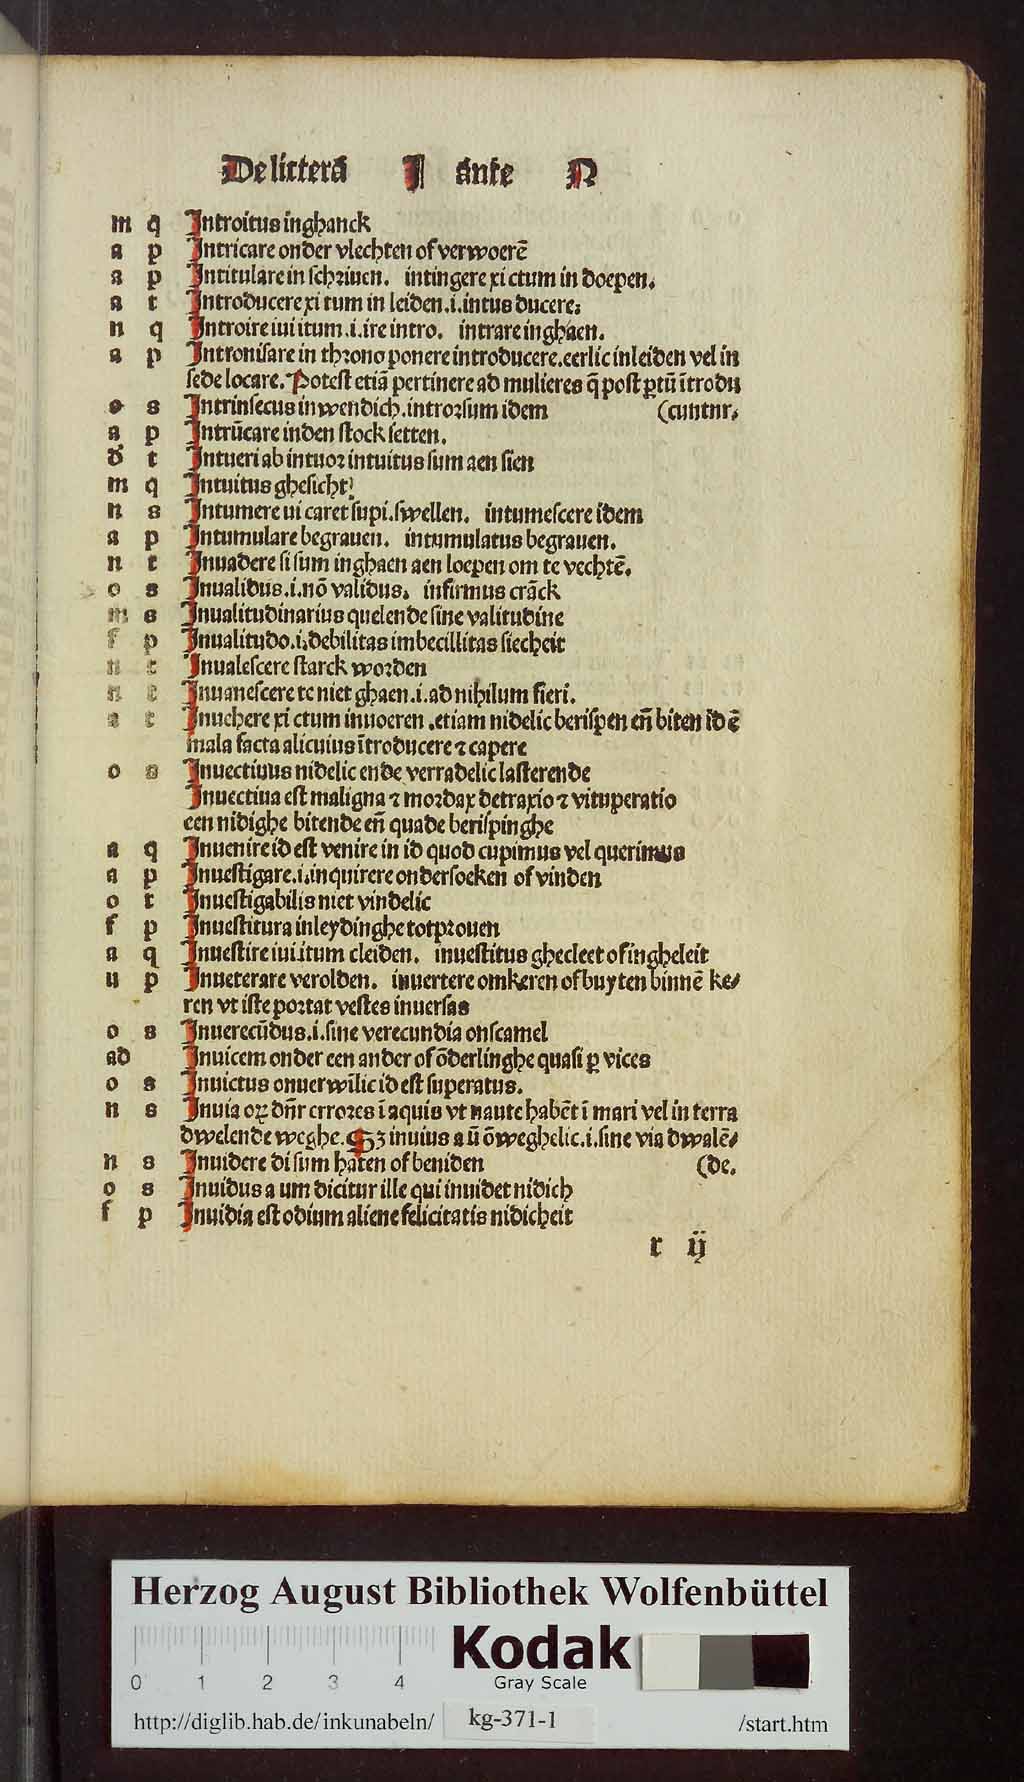 De litterā I ānte N
m q Introitus inghanck
a p Intricare onder vlechten of verwoerē
a p Intitulare in schriuen. intingere xi ctum in doepen.
a t Introducere xi tum in leiden .i. intus ducere:
n q Introire iui itum .i. ire intro. intrare inghaen.
a p Intronisare in throno ponere introducere. eerlic inleiden vel in
sede locare. Potest etiā pertinere ad mulieres q̄ post ꝑtū ītrodu
o s Intrinsecus inwendich. introrsum idem (cuntur.
a p Intrūcare inden stock setten.
d' t Intueri ab intuor intuitus sum aen sien
m q Intuitus ghesicht
n s Intumere ui caret supi. swellen. intumescere idem
a p Intumulare begrauen. intumulatus begrauen.
n t Inuadere si sum inghaen aen loepen om te vechtē.
o s Inualidus .i. nō validus. infirmus crāck
m s Inualitudinarius quelende sine valitudine
f p Inualitudo .i. debilitas imbecillitas siecheit
n t Inualescere starck worden
n t Inuanescere te niet ghaen .i. ad nihilum fieri.
a t Inuehere xi ctum inuoeren . etiam nidelic berispen eñ biten id ē
mala facta alicuius ītroducere ⁊ capere
o s Inuectiuus nidelic ende verradelic lasterende
Inuectiua est maligna ⁊ mordax detraxio ⁊ vituperatio
een nidighe bitende eñ quade berispinghe
a q Inuenire id est venire in id quod cupimus vel querimus
a p Inuestigare .i. inquirere ondersoeken of vinden
o t Inuestigabilis niet vindelic
f p Inuestitura inleydinghe tot prouen
a q Inuestire iui itum cleiden. inuestitus ghecleet of ingheleit
u p Inueterare verolden. inuertere omkeren of buyten binnē ke⸗
ren vt iste portat vestes inuersas
o s Inuerecūdus .i. sine verecundia onscamel
ad Inuicem onder een ander of ōderlinghe quasi ꝑ vices
o s Inuictus onuerwīlic id est superatus.
n s Inuia oꝝ dn̄r errores ī aquis vt naute habēt ī mari vel in terra
dwelende weghe. Sꝫ inuius a ū ōweghelic .i. sine via dwalē⸗
n s Inuidere di sum haten of beniden (de.
o s Inuidus a um dicitur ille qui inuidet nidich
f p Inuidia est odium aliene felicitatis nidicheit
r ij
Herzog August Bibliothek Wolfenbüttel
0 1 2 3 4
Kodak
Gray Scale
http://diglib.hab.de/inkunabeln/ kg-371-1 /start.htm